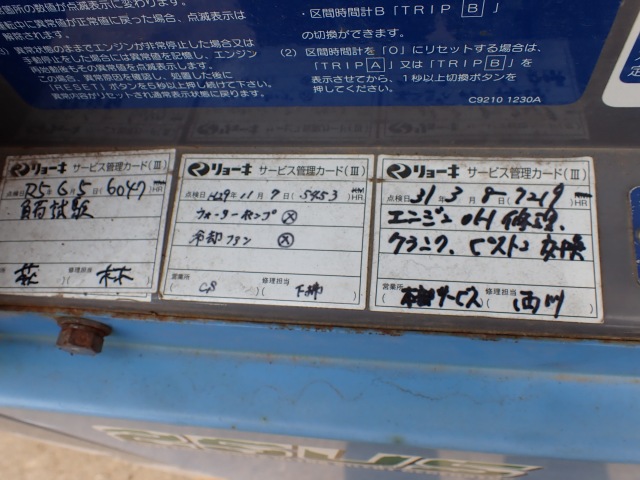 箇所の数値が点滅表示に変わります。
運転中に異常値が正常値に戻った場合、点滅表示は
異常状態のままでエンジンが非常停止した場合又は
手動停止をした場合には異常値を記憶し、エンジン
再始動後もその異常値を点滅表示します。
この場合、異常原因を確認し、処置した後に
「RESET」ボタンを5秒以上押し続けて下さい。
異常内容がリセットされ通常表示状態に戻ります。
・区間時間計B「TRIP B」
の切換ができます。
(2) 区間時間計を「0」にリセットする場合は、
「TRIP A」又は「TRIP B」を
表示させてから、1秒以上切換ボタンを
押してください。
C9210 1230A
リョーキ サービス管理カード(Ⅲ)
点検日 R5年6月5日(6047HR)
負荷試験
営業所 修理担当
林
リョーキ サービス管理カード(Ⅲ)
点検日 H29年11月7日(5453HR)
ウォーターポンプ ⊗
冷却ファン ⊗
営業所 修理担当
リョーキ サービス管理カード(Ⅲ)
点検日 31年3月8日(7219HR)
エンジンO/H修理、
クランク、ピストン 交換
営業所 修理担当
本部サービス 西川